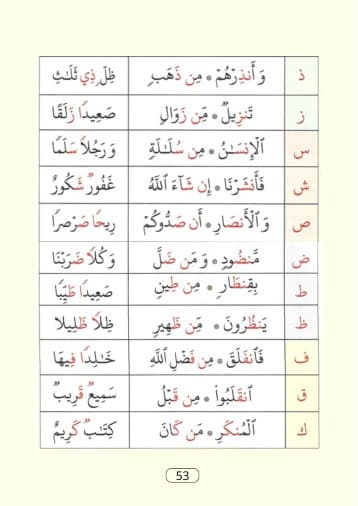 ذ وَأَنذِرْهُمْ * مِن ذَهَبٍ ظِلٍّ ذِي ثَلَـٰثِ
ز تَنزِيلٌ * مِّن زَوَالٍ صَعِيدًا زَلَقًا
س ٱلْإِنسَـٰنُ * مِن سُلَـٰلَةٍ وَرَجُلًا سَلَمًا
ش فَأَنشَرْنَا * إِن شَآءَ ٱللَّهُ غَفُورٌ شَكُورٌ
ص وَٱلْأَنصَارِ * أَن صَدُّوكُمْ رِيحًا صَرْصَرًا
ض مَّنضُودٍ * وَمَن ضَلَّ وَكُلًّا ضَرَبْنَا
ط بِقِنطَارٍ * مِن طِينٍ صَعِيدًا طَيِّبًا
ظ يَنظُرُونَ * مِّن ظَهِيرٍ ظِلًّا ظَلِيلًا
ف فَٱنفَلَقَ * مِن فَضْلِ ٱللَّهِ خَـٰلِدًا فِيهَا
ق ٱنقَلَبُوا۟ * مِن قَبْلُ سَمِيعٌ قَرِيبٌ
ك ٱلْمُنكَرِ * مَن كَانَ كِتَـٰبٌ كَرِيمٌ
53